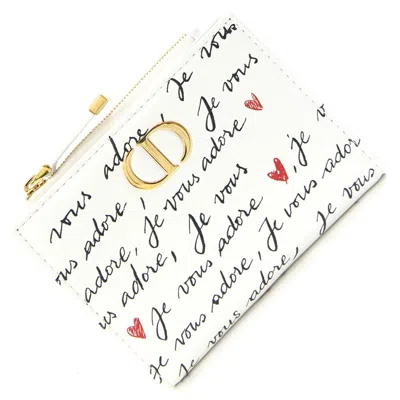 Je vous
vous adore, Je vous
vous adore, Je vous adore
adore, Je vous adore, Je vous
us adore, Je vous adore, Je vous ador
Je vous adore
Je vous adore, Je vous
Je vous adore,
CD